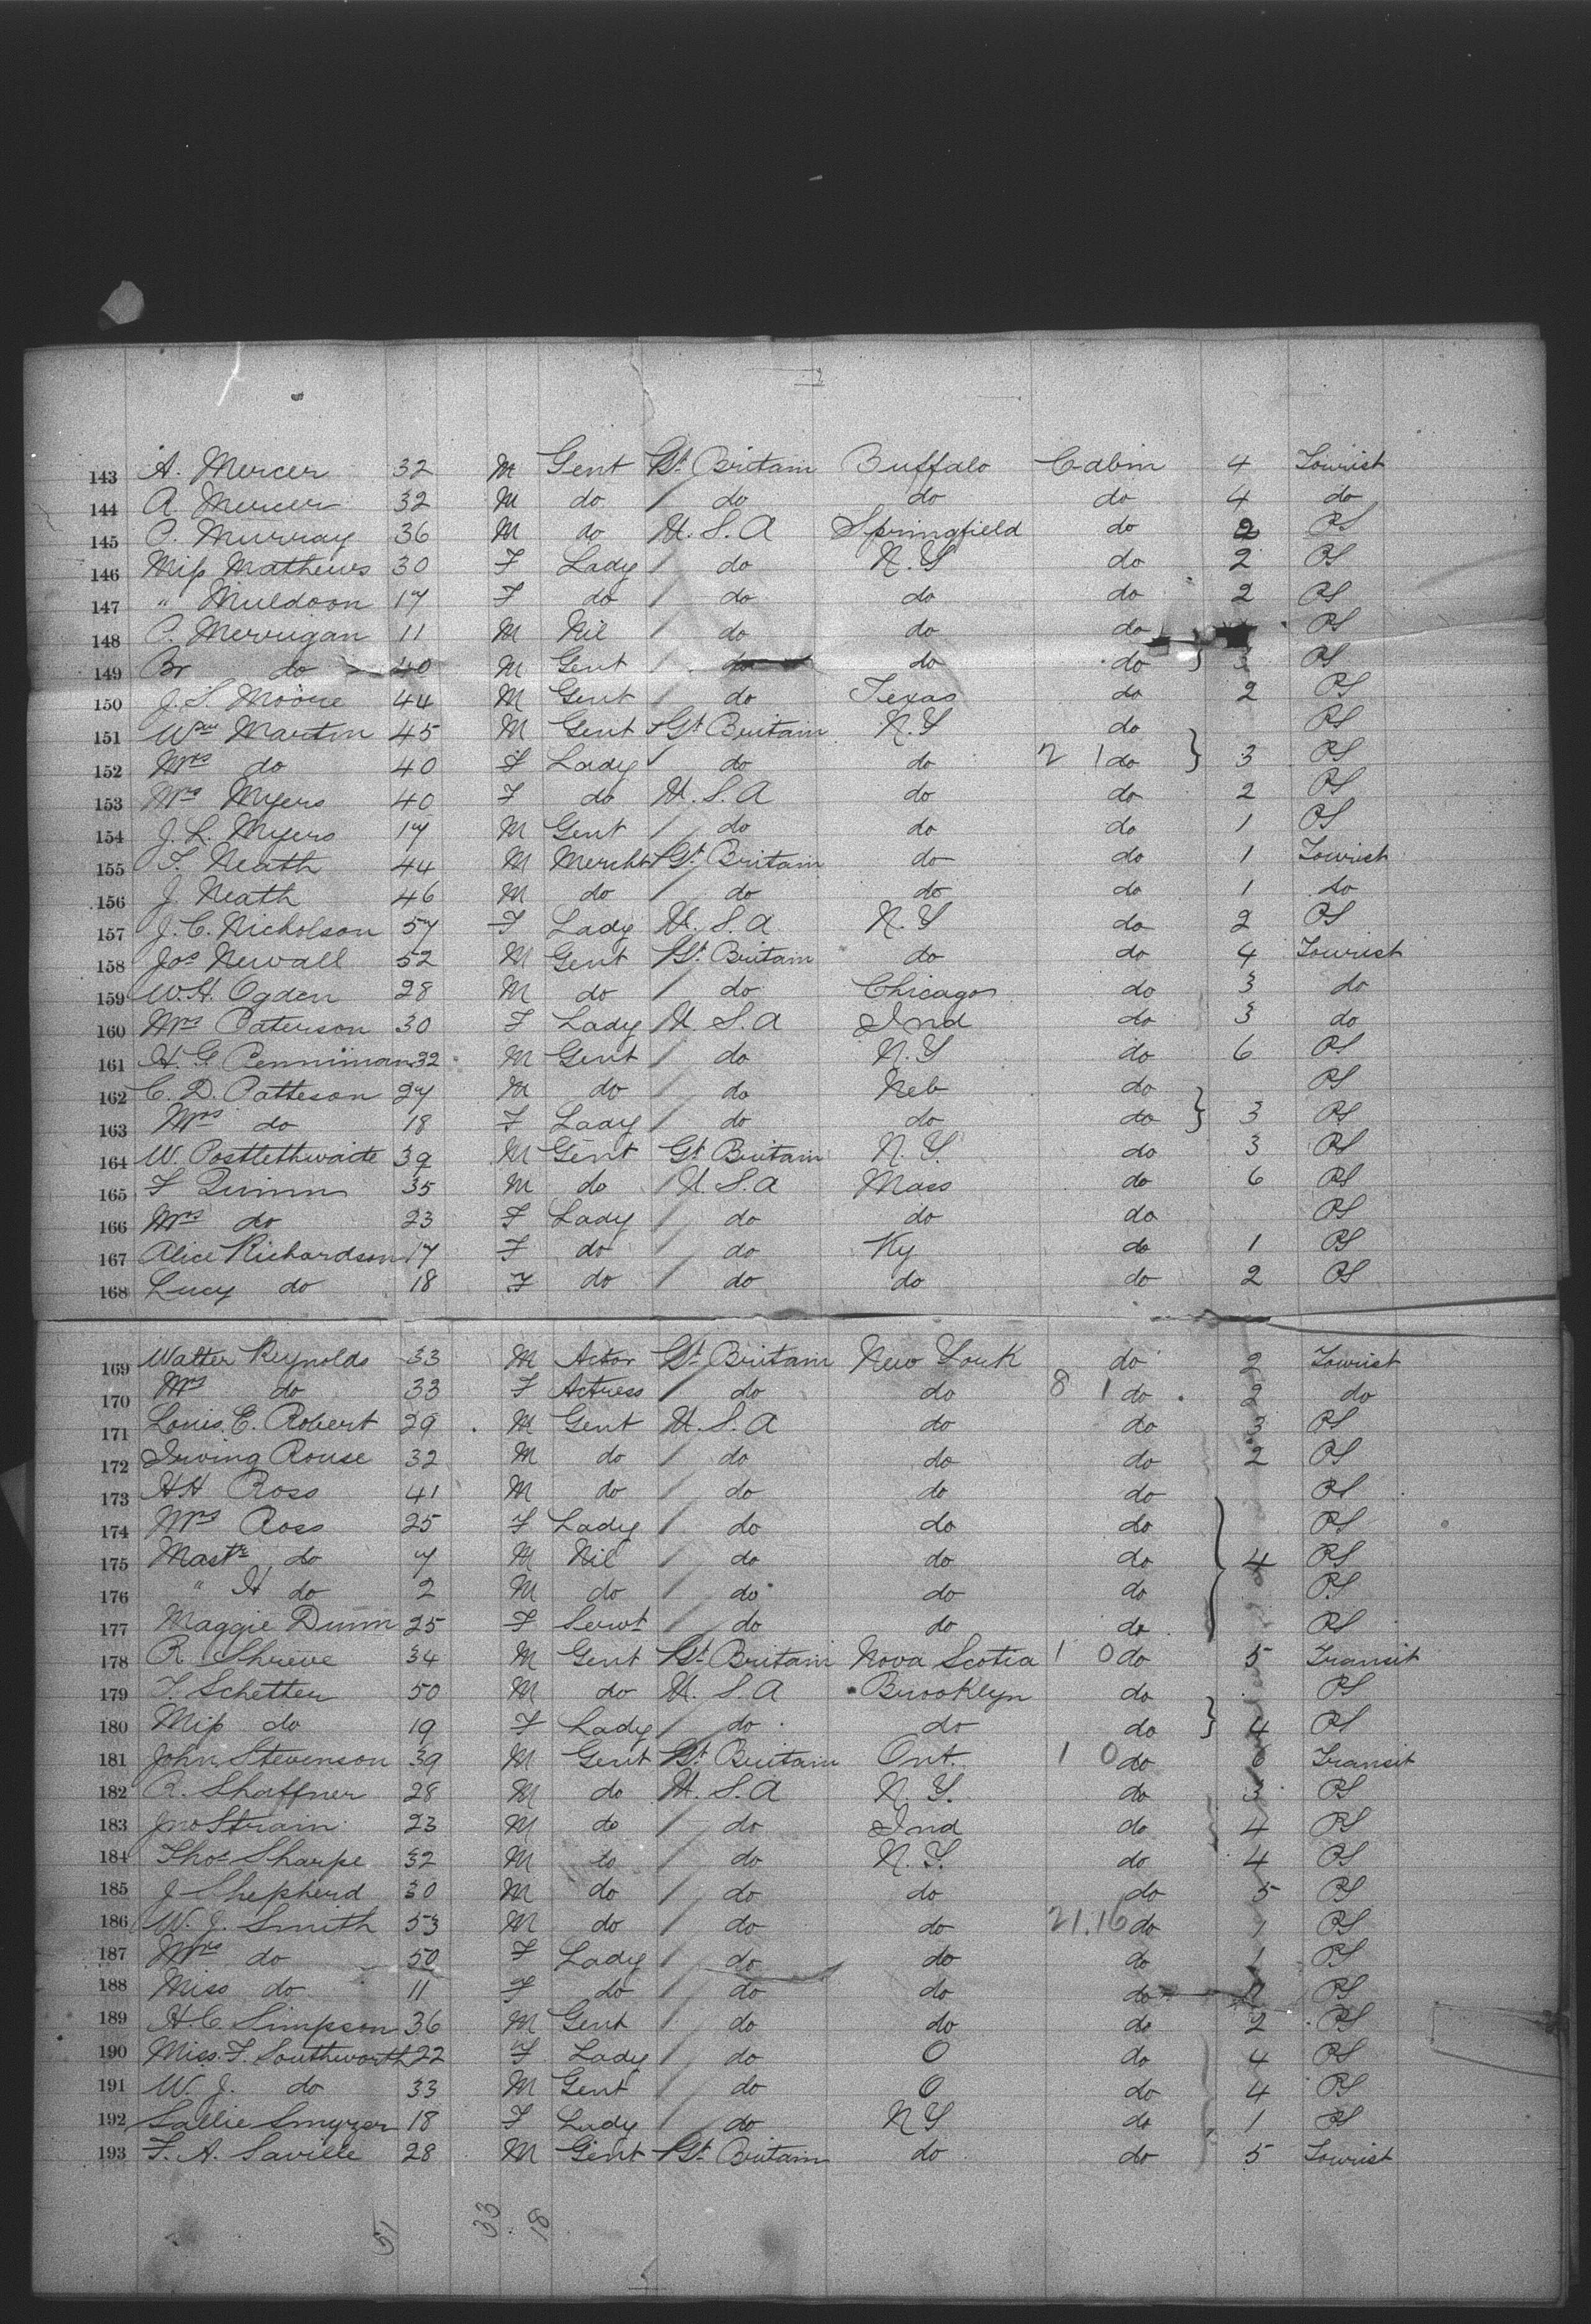 143 A. Mercer 32 M Gent Gt Britain Buffalo Cabin 4 Tourist
144 A. Mercer 32 M do do do do 4 do
145 P. Murray 36 M do U.S.A Springfield do 2 PS
146 Miss Mathews 30 F Lady do N.Y do 2 PS
147 " Muldoon 17 F do do do do 2 PS
148 P. Merrigan 11 M Nil do do do PS
149 Br do 40 M Gent do do do } 3 PS
150 J.S. Moore 44 M Gent do Texas do 2 PS
151 Wm Martin 45 M Gent Gt Britain N.Y do PS
152 Mrs do 40 F Lady do do 2 1 do } 3 PS
153 Mrs Myers 40 F do U.S.A do do 2 PS
154 J.L. Myers 17 M Gent do do do 1 PS
155 T. Neath 44 M Mercht Gt Britain do do 1 Tourist
156 J. Neath 46 M do do do do 1 do
157 J.C. Nicholson 57 F Lady U.S.A N.Y do 2 PS
158 Jos Newall 52 M Gent Gt Britain do do 4 Tourist
159 W.H. Ogden 28 M do do Chicago do 3 do
160 Mrs Paterson 30 F Lady U.S.A Ind do 3 do
161 H.G. Penniman 32 M Gent do N.Y do 6 PS
162 C.D. Patteson 27 M do do Neb do PS
163 Mrs do 18 F Lady do do do } 3 PS
164 W. Postlethwaite 39 M Gent Gt Britain N.Y. do 3 PS
165 F Quinn 35 M do U.S.A Mass do 6 PS
166 Mrs do 23 F Lady do do do PS
167 Alice Richardson 17 F do do Ky do 1 PS
168 Lucy do 18 F do do do do 2 PS
169 Walter Reynolds 33 M Actor Gt Britain New York do 2 Tourist
170 Mrs do 33 F Actress do do 8 1 do 2 do
171 Louis E. Robert 29 M Gent U.S.A do do 3 PS
172 Irving Rouse 32 M do do do do 2 PS
173 HH Ross 41 M do do do do PS
174 Mrs Ross 25 F Lady do do do PS
175 Mastr do 7 M Nil do do do } 4 PS
176 " H do 2 M do do do do PS
177 Maggie Dunn 25 F Servt do do do PS
178 R Shreve 34 M Gent Gt Britain Nova Scotia 1 0 do 5 Transit
179 T. Schetter 50 M do U.S.A Brooklyn do PS
180 Miss do 19 F Lady do do do } 4 PS
181 John Stevenson 39 M Gent Gt Britain Ont. 1 0 do 6 Transit
182 R. Shaffner 28 M do U.S.A N.Y. do 3 PS
183 Jno Strain 23 M do do Ind do 4 PS
184 Thos Sharpe 32 M do do N.Y. do 4 PS
185 J Shepherd 30 M do do do do 5 PS
186 W.J. Smith 53 M do do do 21.16 do 1 PS
187 Mrs do 50 F Lady do do do 1 PS
188 Miss do 11 F do do do do PS
189 H.C. Simpson 36 M Gent do do do 2 PS
190 Miss F. Southworth 22 F Lady do O do 4 PS
191 W.J. do 33 M Gent do O do 4 PS
192 Sallie Smyzer 18 F Lady do NY do 1 PS
193 F.A. Saville 28 M Gent Gt Britain do do 5 Tourist
51 33 18